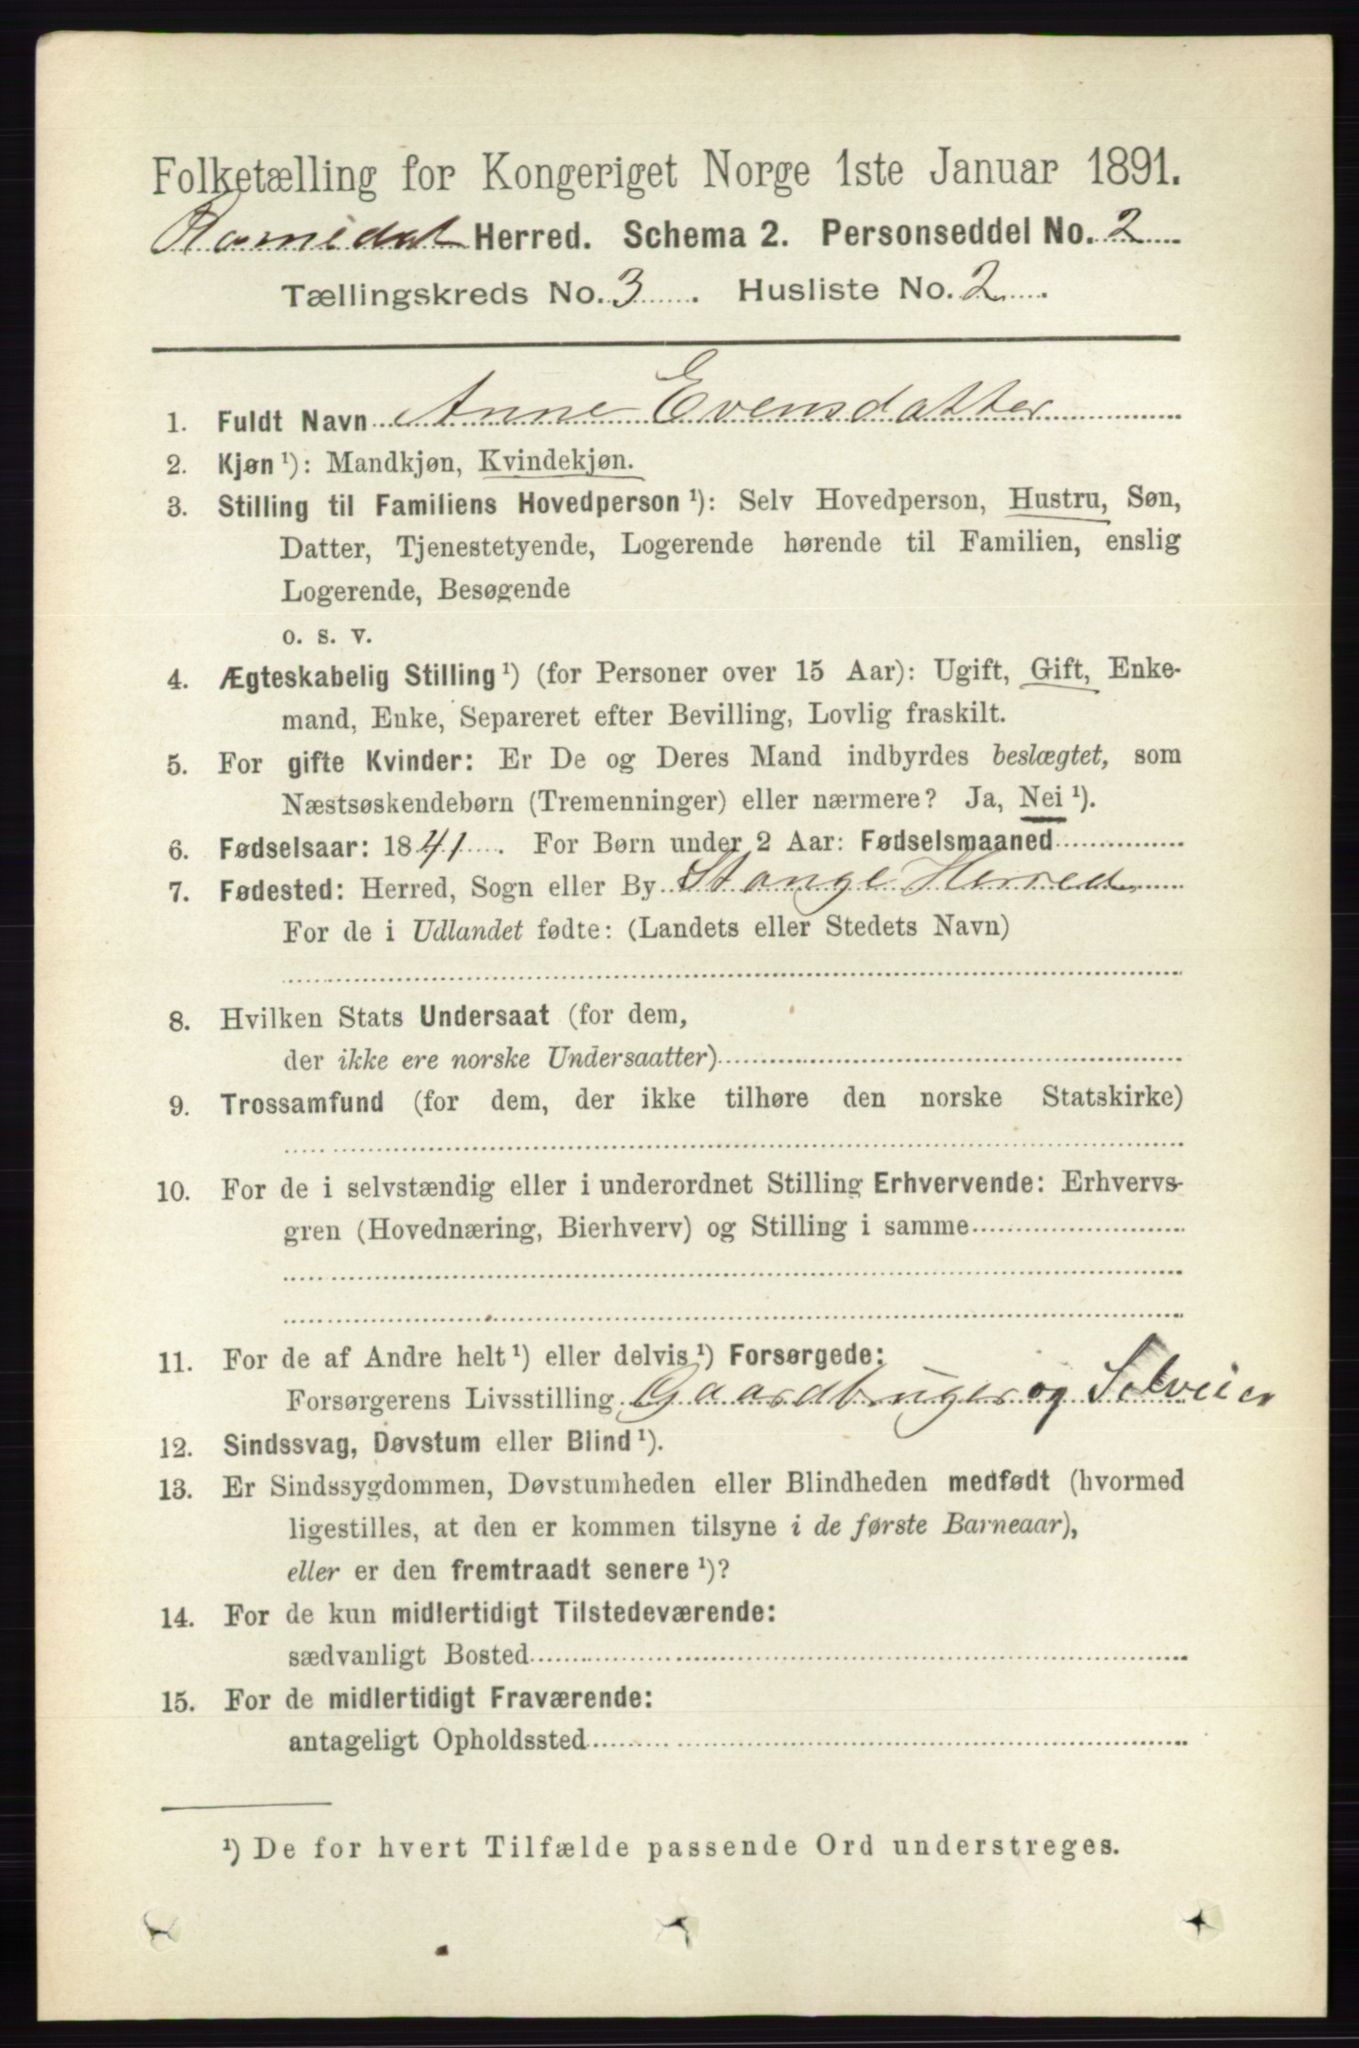 Folketælling for Kongeriget Norge 1ste Januar 1891.
Romedal Herred. Schema 2. Personseddel No. 2
Tællingskreds No. 3. Husliste No. 2
1. Fuldt Navn Anne Evensdatter
2. Kjøn¹): Mandkjøn, Kvindekjøn.
3. Stilling til Familiens Hovedperson¹): Selv Hovedperson, Hustru, Søn,
Datter, Tjenestetyende, Logerende hørende til Familien, enslig
Logerende, Besøgende
o. s. v.
4. Ægteskabelig Stilling¹) (for Personer over 15 Aar): Ugift, Gift, Enke-
mand, Enke, Separeret efter Bevilling, Lovlig fraskilt.
5. For gifte Kvinder: Er De og Deres Mand indbyrdes beslægtet, som
Næstsøskendebørn (Tremenninger) eller nærmere? Ja, Nei¹).
6. Fødselsaar: 1841. For Børn under 2 Aar: Fødselsmaaned
7. Fødested: Herred, Sogn eller By Stange Herred
For de i Udlandet fødte: (Landets eller Stedets Navn)
8. Hvilken Stats Undersaat (for dem,
der ikke ere norske Undersaatter)
9. Trossamfund (for dem, der ikke tilhøre den norske Statskirke)
10. For de i selvstændig eller i underordnet Stilling Erhvervende: Erhvervs-
gren (Hovednæring, Bierhverv) og Stilling i samme
11. For de af Andre helt¹) eller delvis¹) Forsørgede:
Forsørgerens Livsstilling Gaardbruger og Selveier
12. Sindssvag, Døvstum eller Blind¹).
13. Er Sindssygdommen, Døvstumheden eller Blindheden medfødt (hvormed
ligestilles, at den er kommen tilsyne i de første Barneaar),
eller er den fremtraadt senere¹)?
14. For de kun midlertidigt Tilstedeværende:
sædvanligt Bosted
15. For de midlertidigt Fraværende:
antageligt Opholdssted
¹) De for hvert Tilfælde passende Ord understreges.